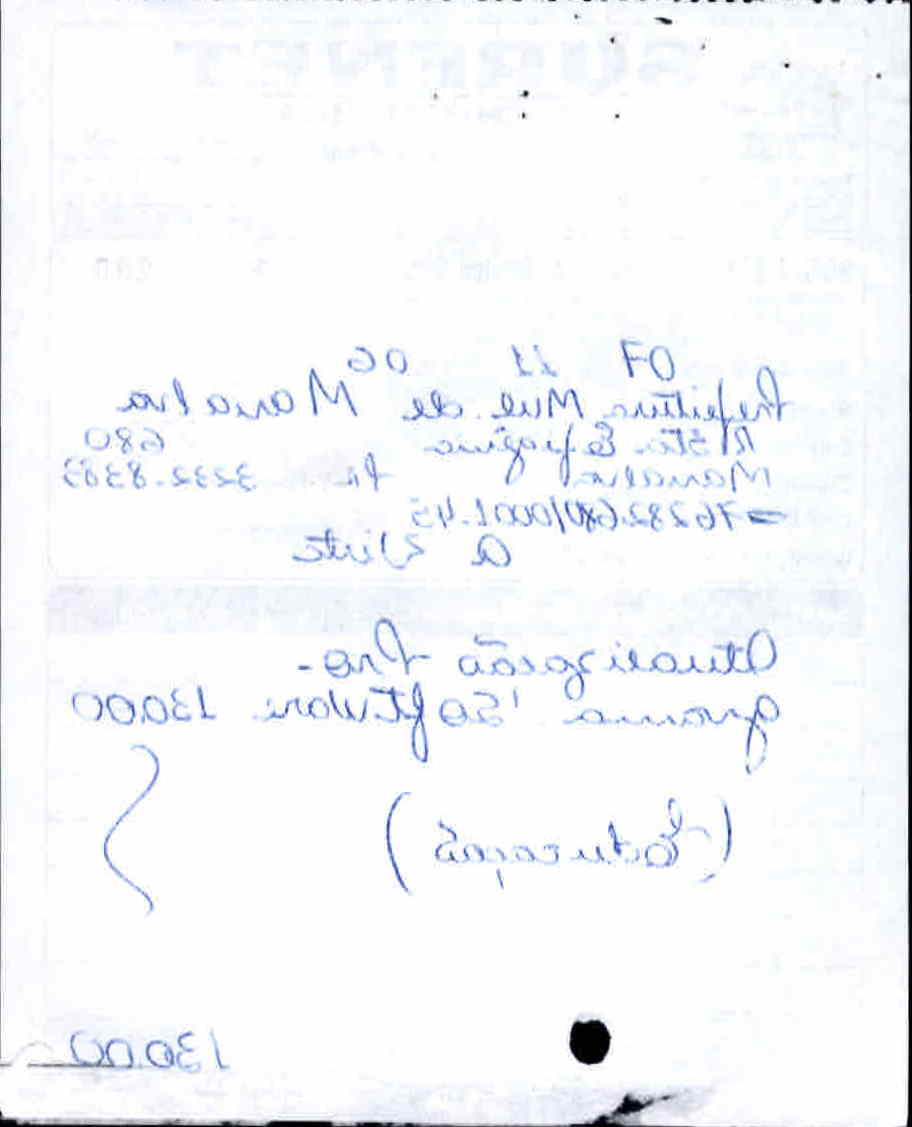 07 11 06
Prefeitura Mul de Marialva
R Sta Efigênia 680
Marialva Pr 3232.8383
76282.680/0001.45
a Vista
Atualização Pro-
grama 'Software 130.00
(Educação)
130.00